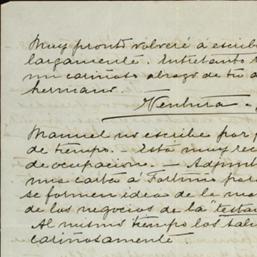 Muy pronto volveré á escribi
largamente. Entretanto
mi cariñoso abrazo de tu a
hermano.
Ventura
Manuel no escribe por
de tiempo. — Está muy rec
de ocupacions. — Adjunt
una carta á Fortuno para
se formen idea de la ma
de los negocios de la "testa
Al mismo tiempo los salu
cariñosamente.